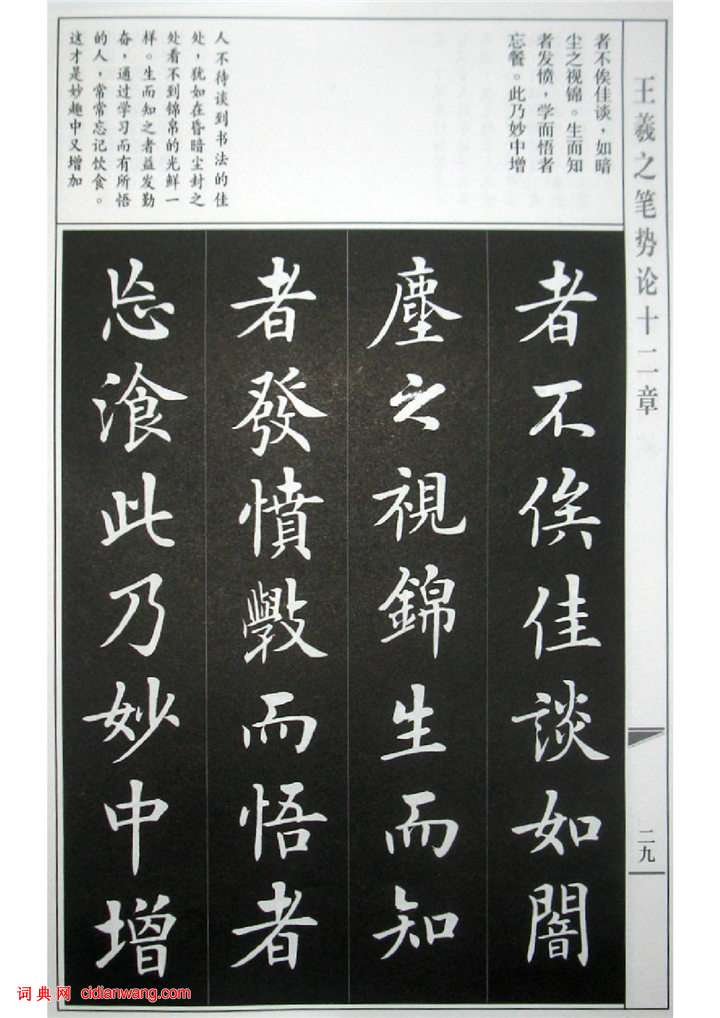 王羲之笔势论十二章
二九
者不俟佳谈，如暗
尘之视锦。生而知
者发愤，学而悟者
忘餐。此乃妙中增
人不待谈到书法的佳
处，犹如在昏暗尘封之
处看不到锦帛的光鲜一
样。生而知之者益发勤
奋，通过学习而有所悟
的人，常常忘记饮食。
这才是妙趣中又增加
者不俟佳談如闇
塵之視錦生而知
者發憤斆而悟者
忘飡此乃妙中增
词典网 cidianwang.com